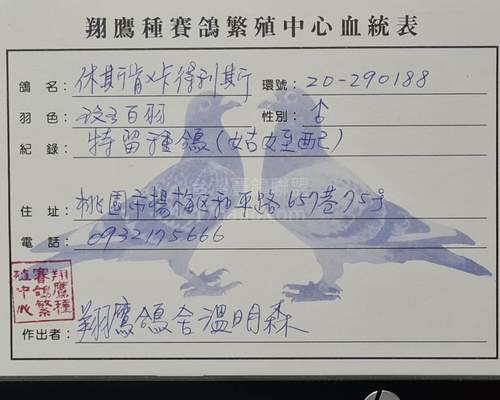 翔鷹種賽鴿繁殖中心血統表
鴿名：休斯肯X卡得利斯 環號：20-290188
羽色：玟白羽 性別：♂
紀錄：特留種鴿(姑姪配)
住址：桃園市楊梅区和平路657巷75号
電話：0932175666
翔鷹種
賽鴿繁
殖中心
作出者：翔鷹鴿舍溫明森